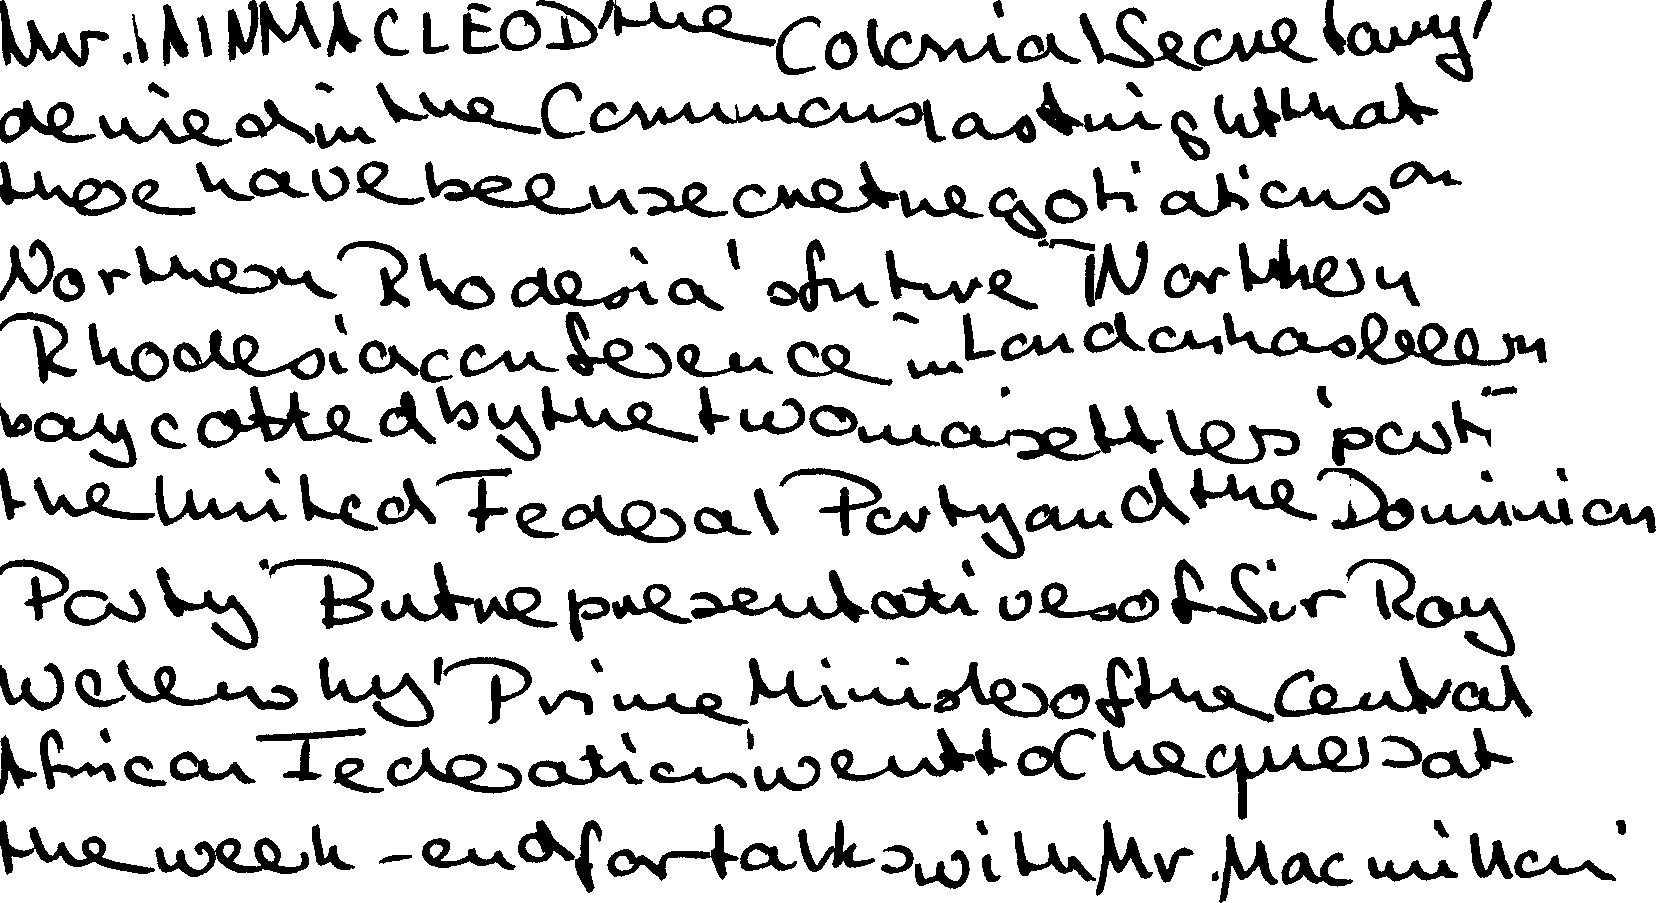 Mr. IAIN MACLEOD the Colonial Secretary,
denied in the Commons last night that
there have been secret negotiations on
Northern Rhodesia's future. Northern
Rhodesia conference in London has been
boycotted by the two main settlers' parti-
the United Federal Party and the Dominion
Party. But representatives of Sir Roy
Welensky, Prime Minister of the Central
African Federation, went to Chequers at
the week-end for talks with Mr. Macmillan.